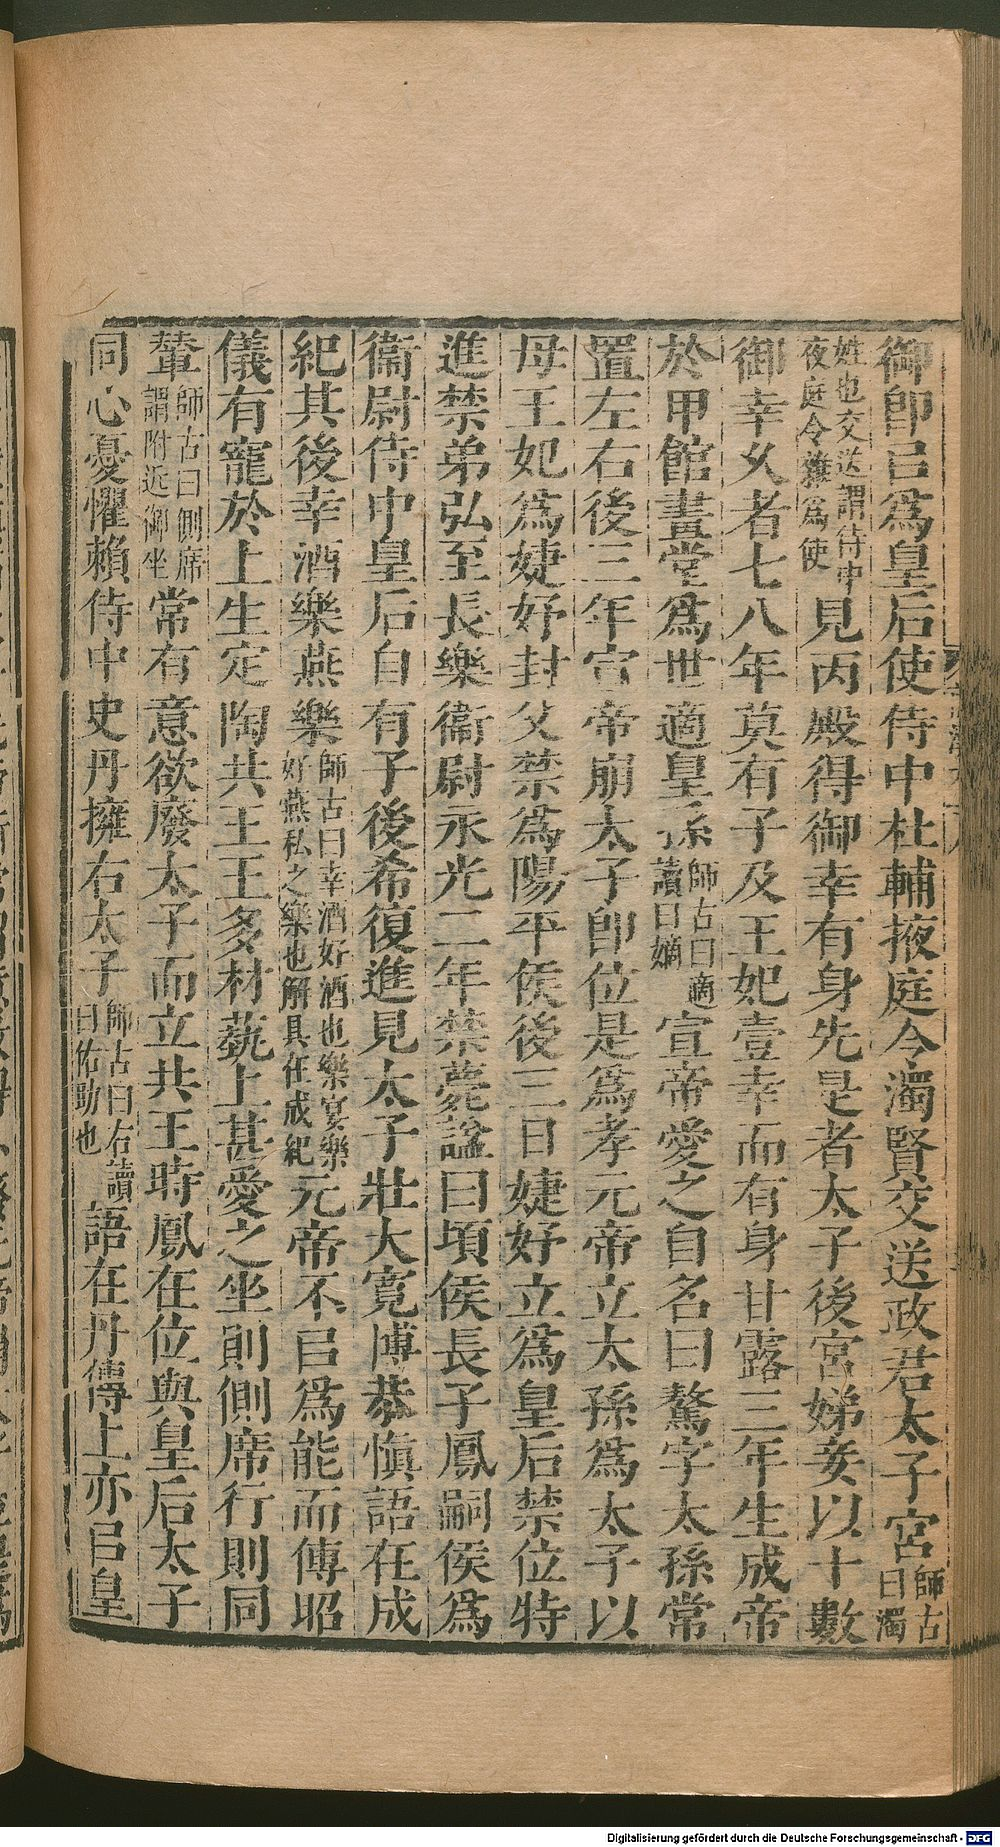 御即㠯爲皇后使侍中杜輔掖庭令濁賢交送政君太子宮師古曰濁
姓也交送謂侍中夜庭令雜爲使見丙殿得御幸有身先是者太子後宮娣妾以十數
御幸久者七八年莫有子及王妃壹幸而有身甘露三年生成帝
於甲館畫堂爲世適皇孫師古曰適讀曰嫡宣帝愛之自名曰驁字太孫常
置左右後三年宣帝崩太子即位是爲孝元帝立太孫爲太子以
母王妃爲婕妤封父禁爲陽平侯後三日婕妤立爲皇后禁位特
進禁弟弘至長樂衞尉永光二年禁薨謚曰頃侯長子鳳嗣侯爲
衞尉侍中皇后自有子後希復進見太子壯大寬博恭愼語在成
紀其後幸酒樂燕樂師古曰幸酒好酒也樂宴樂好燕私之樂也解具在成紀元帝不㠯爲能而傅昭
儀有寵於上生定陶共王王多材藝上甚愛之坐則側席行則同
輦師古曰側席謂附近御坐常有意欲廢太子而立共王時鳳在位與皇后太子
同心憂懼賴侍中史丹擁右太子師古曰右讀曰佑助也語在丹傳上亦㠯皇
Digitalisierung gefördert durch die Deutsche Forschungsgemeinschaft - DFG